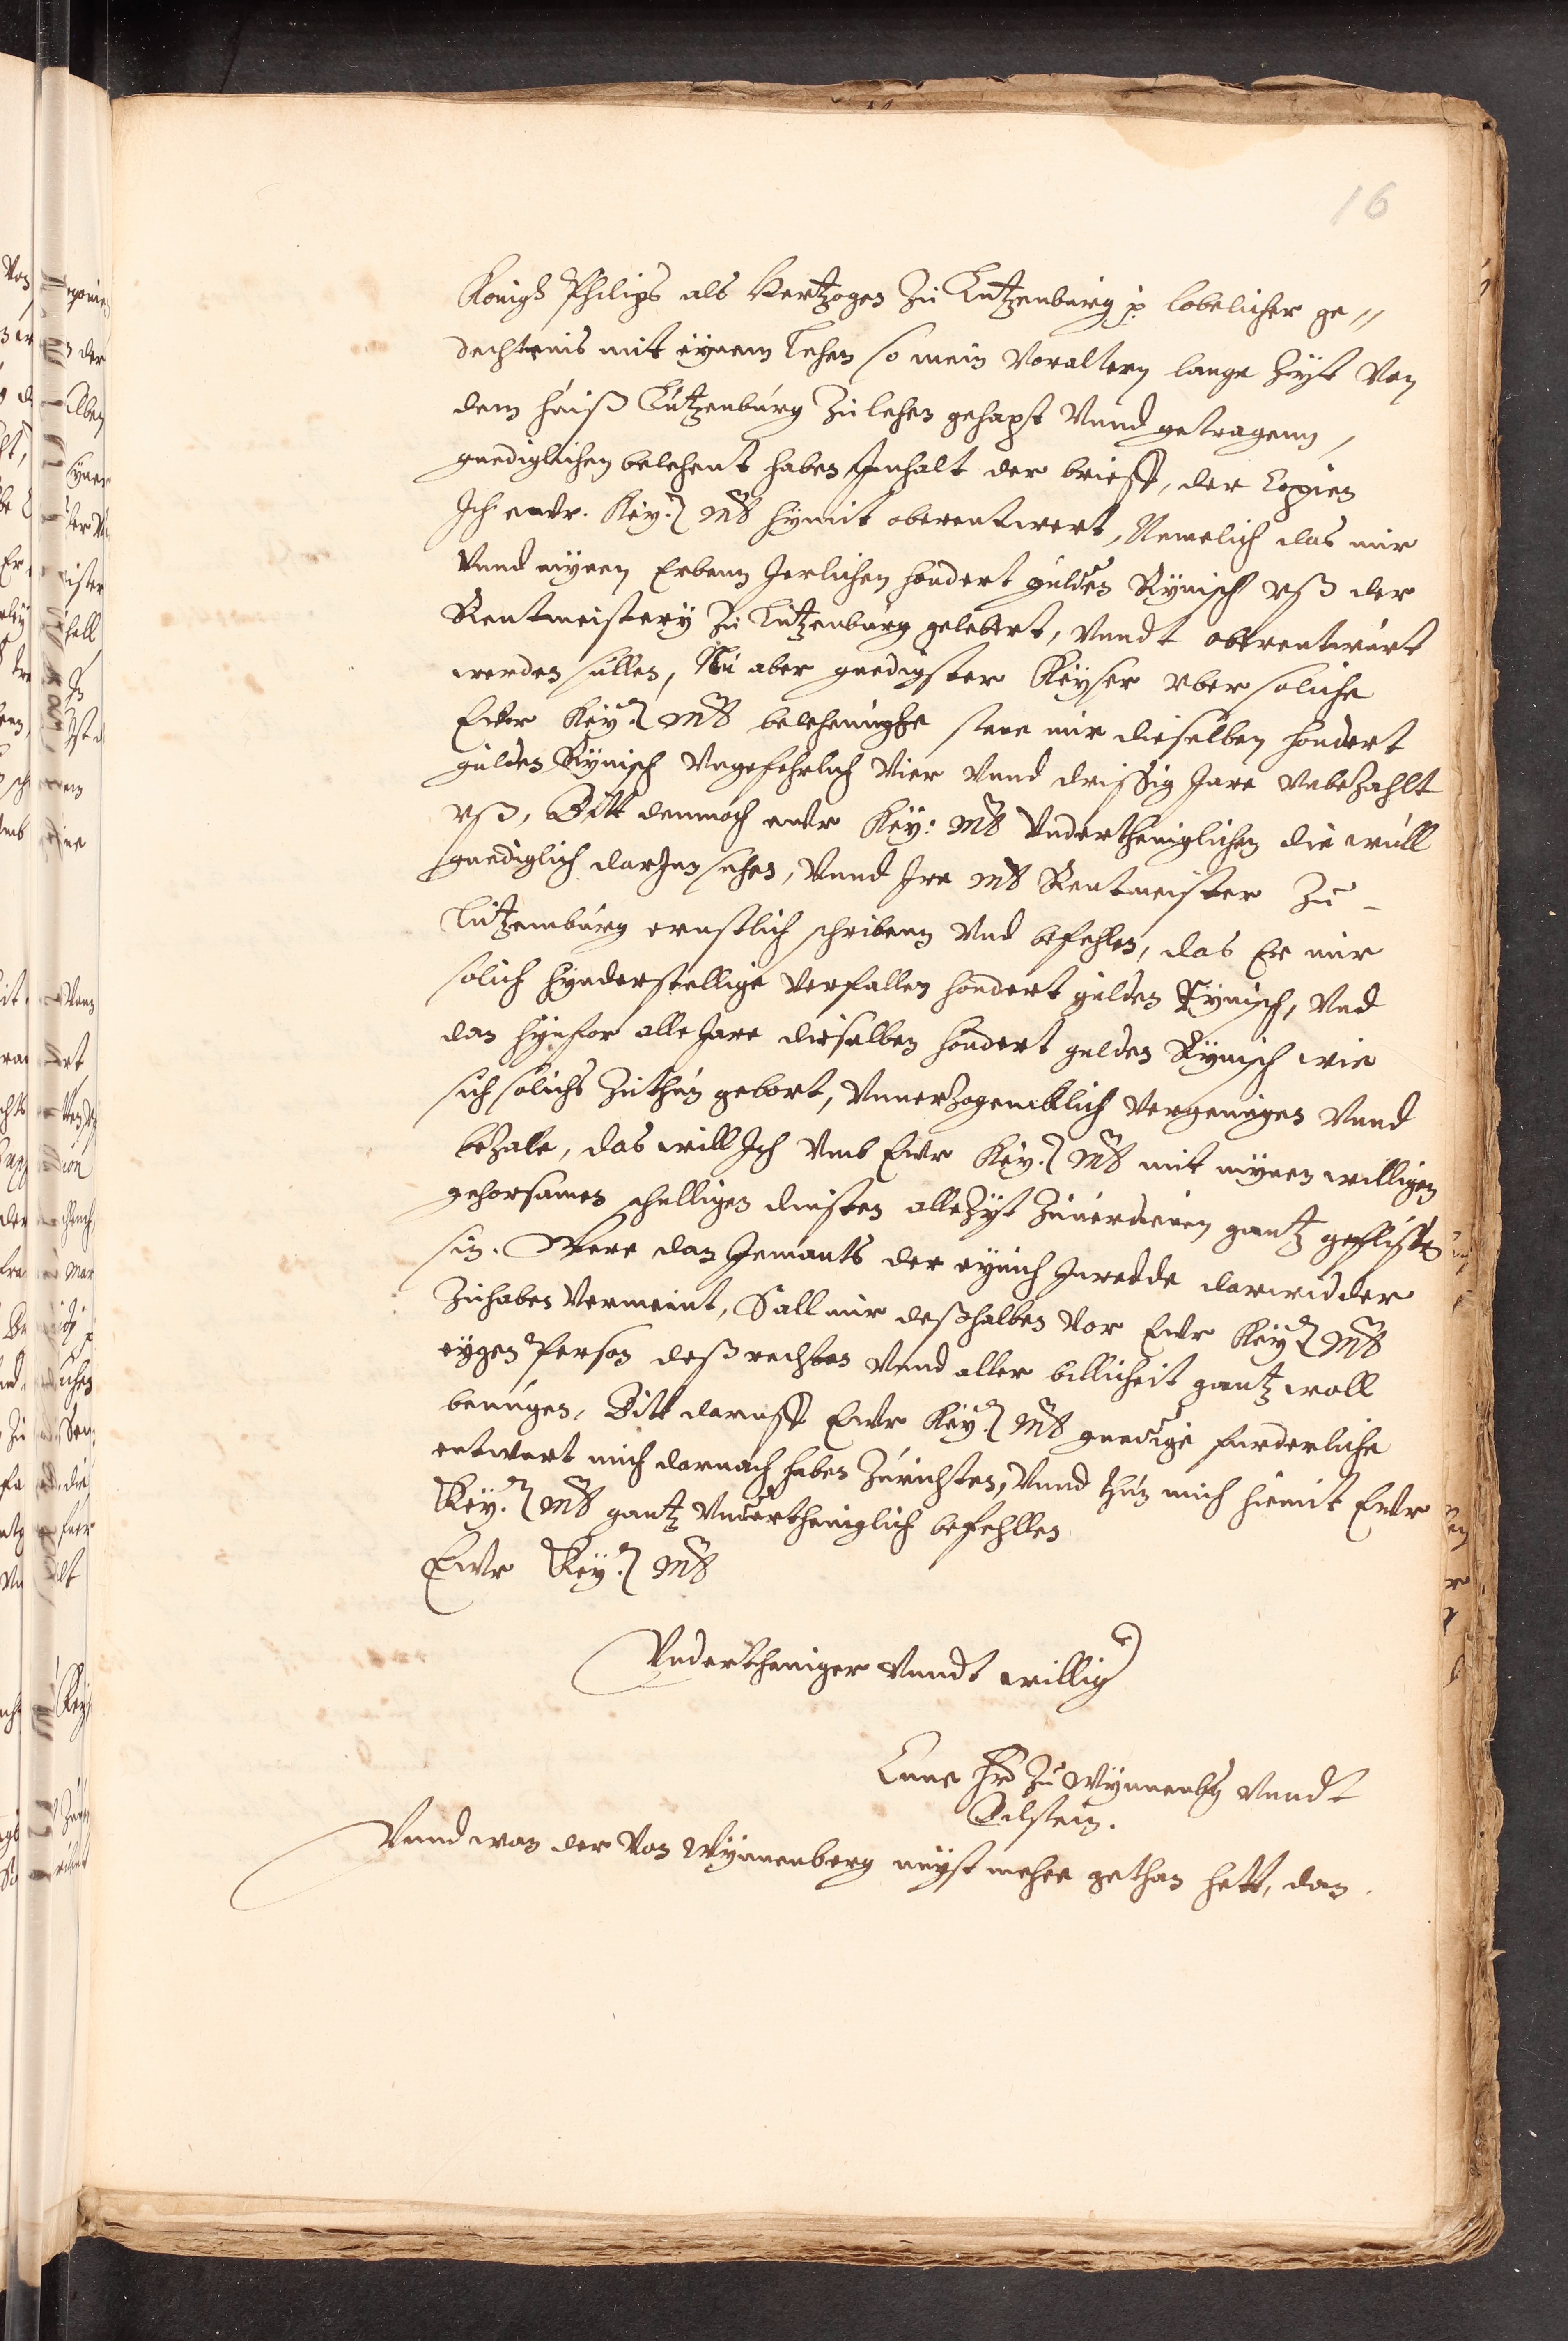 16
Konigs Philips als Hertzogen Zu Lutzenburg p. lobelicher ge //
dechtenis mit eynem Lehen so mein Voraltern lange Zyt Von
dem huiß Lutzenburg Zu lehen gehapt Vnnd getragenn,
gnediglichen belehent haben Inhalt der brieff, der Copien
Ich ewr. Key. Mt hymit oberentwert, Nemelich das mir
Vnnd mynen Erbenn Jerlichen hondert gulden Rynisch vß der
Rentmeistery Zu Lutzenburg gelebert, Vnndt oberentwurt
werden sullen, Nu aber gnedigster Keyser vber soliche
Ewr Key. Mt belehnughe stene mir dieselben hondert
gulden Rynisch Vngefehrlich Vier Vnnd drissig Jare Vnbezahlt
vß, Bitt demnoch ewr Key: Mt Vnderthenniglichen die wull
gnediglich darInn sehen, Vnnd Ire Mt Rentmeister Zu -
Lutzemburg ernstlich schribenn Vnd befehlen, das Er mir
solich hynderstellige Verfallen hondert gulden Rynisch, Vnd
dan hynfor alle Jare dieselben hondert gulden Rynisch wie
sich solichs Zuthun gebort, Vnuerzogenncklich Vergenugen Vnnd
bezale, das will Ich Vmb Ewr Key. Mt mit mynen willigen
gehorsamen schulligen dinsten alle Zyt Zuuerdienen gantz geflissen
sin. Were dan Jemants der eynich Inredde darwidder
Zuhaben Vermeint, Sall mir deßhalben Vor Ewr Key. Mt
eygen Person deß rechten Vnnd aller billicheit gantz woll
benugen, Bitt daruff Ewr Key. Mt gnedige furderliche
entwort mich darnach haben Zurichten, Vnnd thun mich hiemit Ewr
Key. Mt gantz Vnderthenniglich befehllen
Ewr Key. Mt
Vndertheniger Vnndt willig
Cune Hr Zu Wynnenbg Vnndt
Bilstein.
Vnnd wan der Von Wynnenberg nyst mehre gethan hett, dan